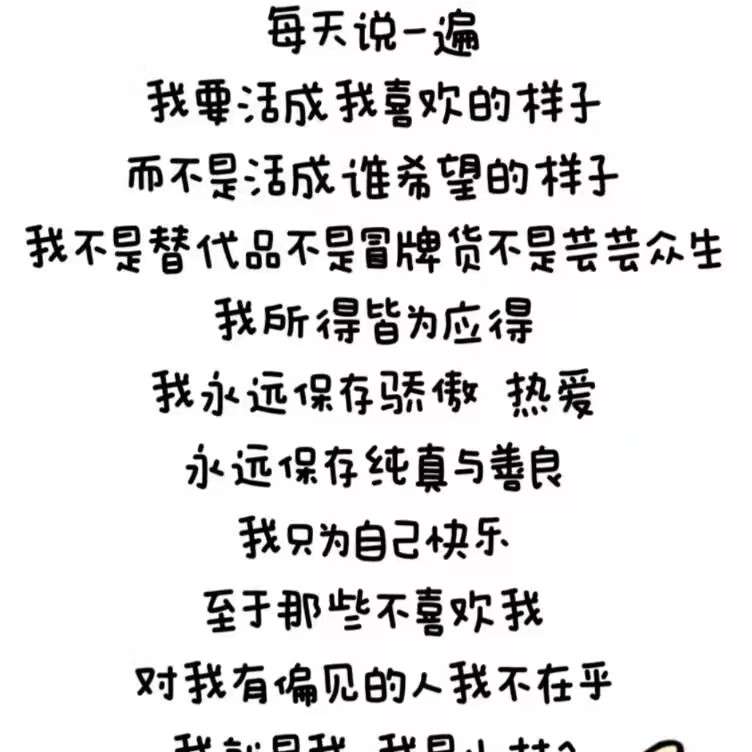 每天说一遍
我要活成我喜欢的样子
而不是活成谁希望的样子
我不是替代品不是冒牌货不是芸芸众生
我所得皆为应得
我永远保存骄傲 热爱
永远保存纯真与善良
我只为自己快乐
至于那些不喜欢我
对我有偏见的人我不在乎
我就是我 我是